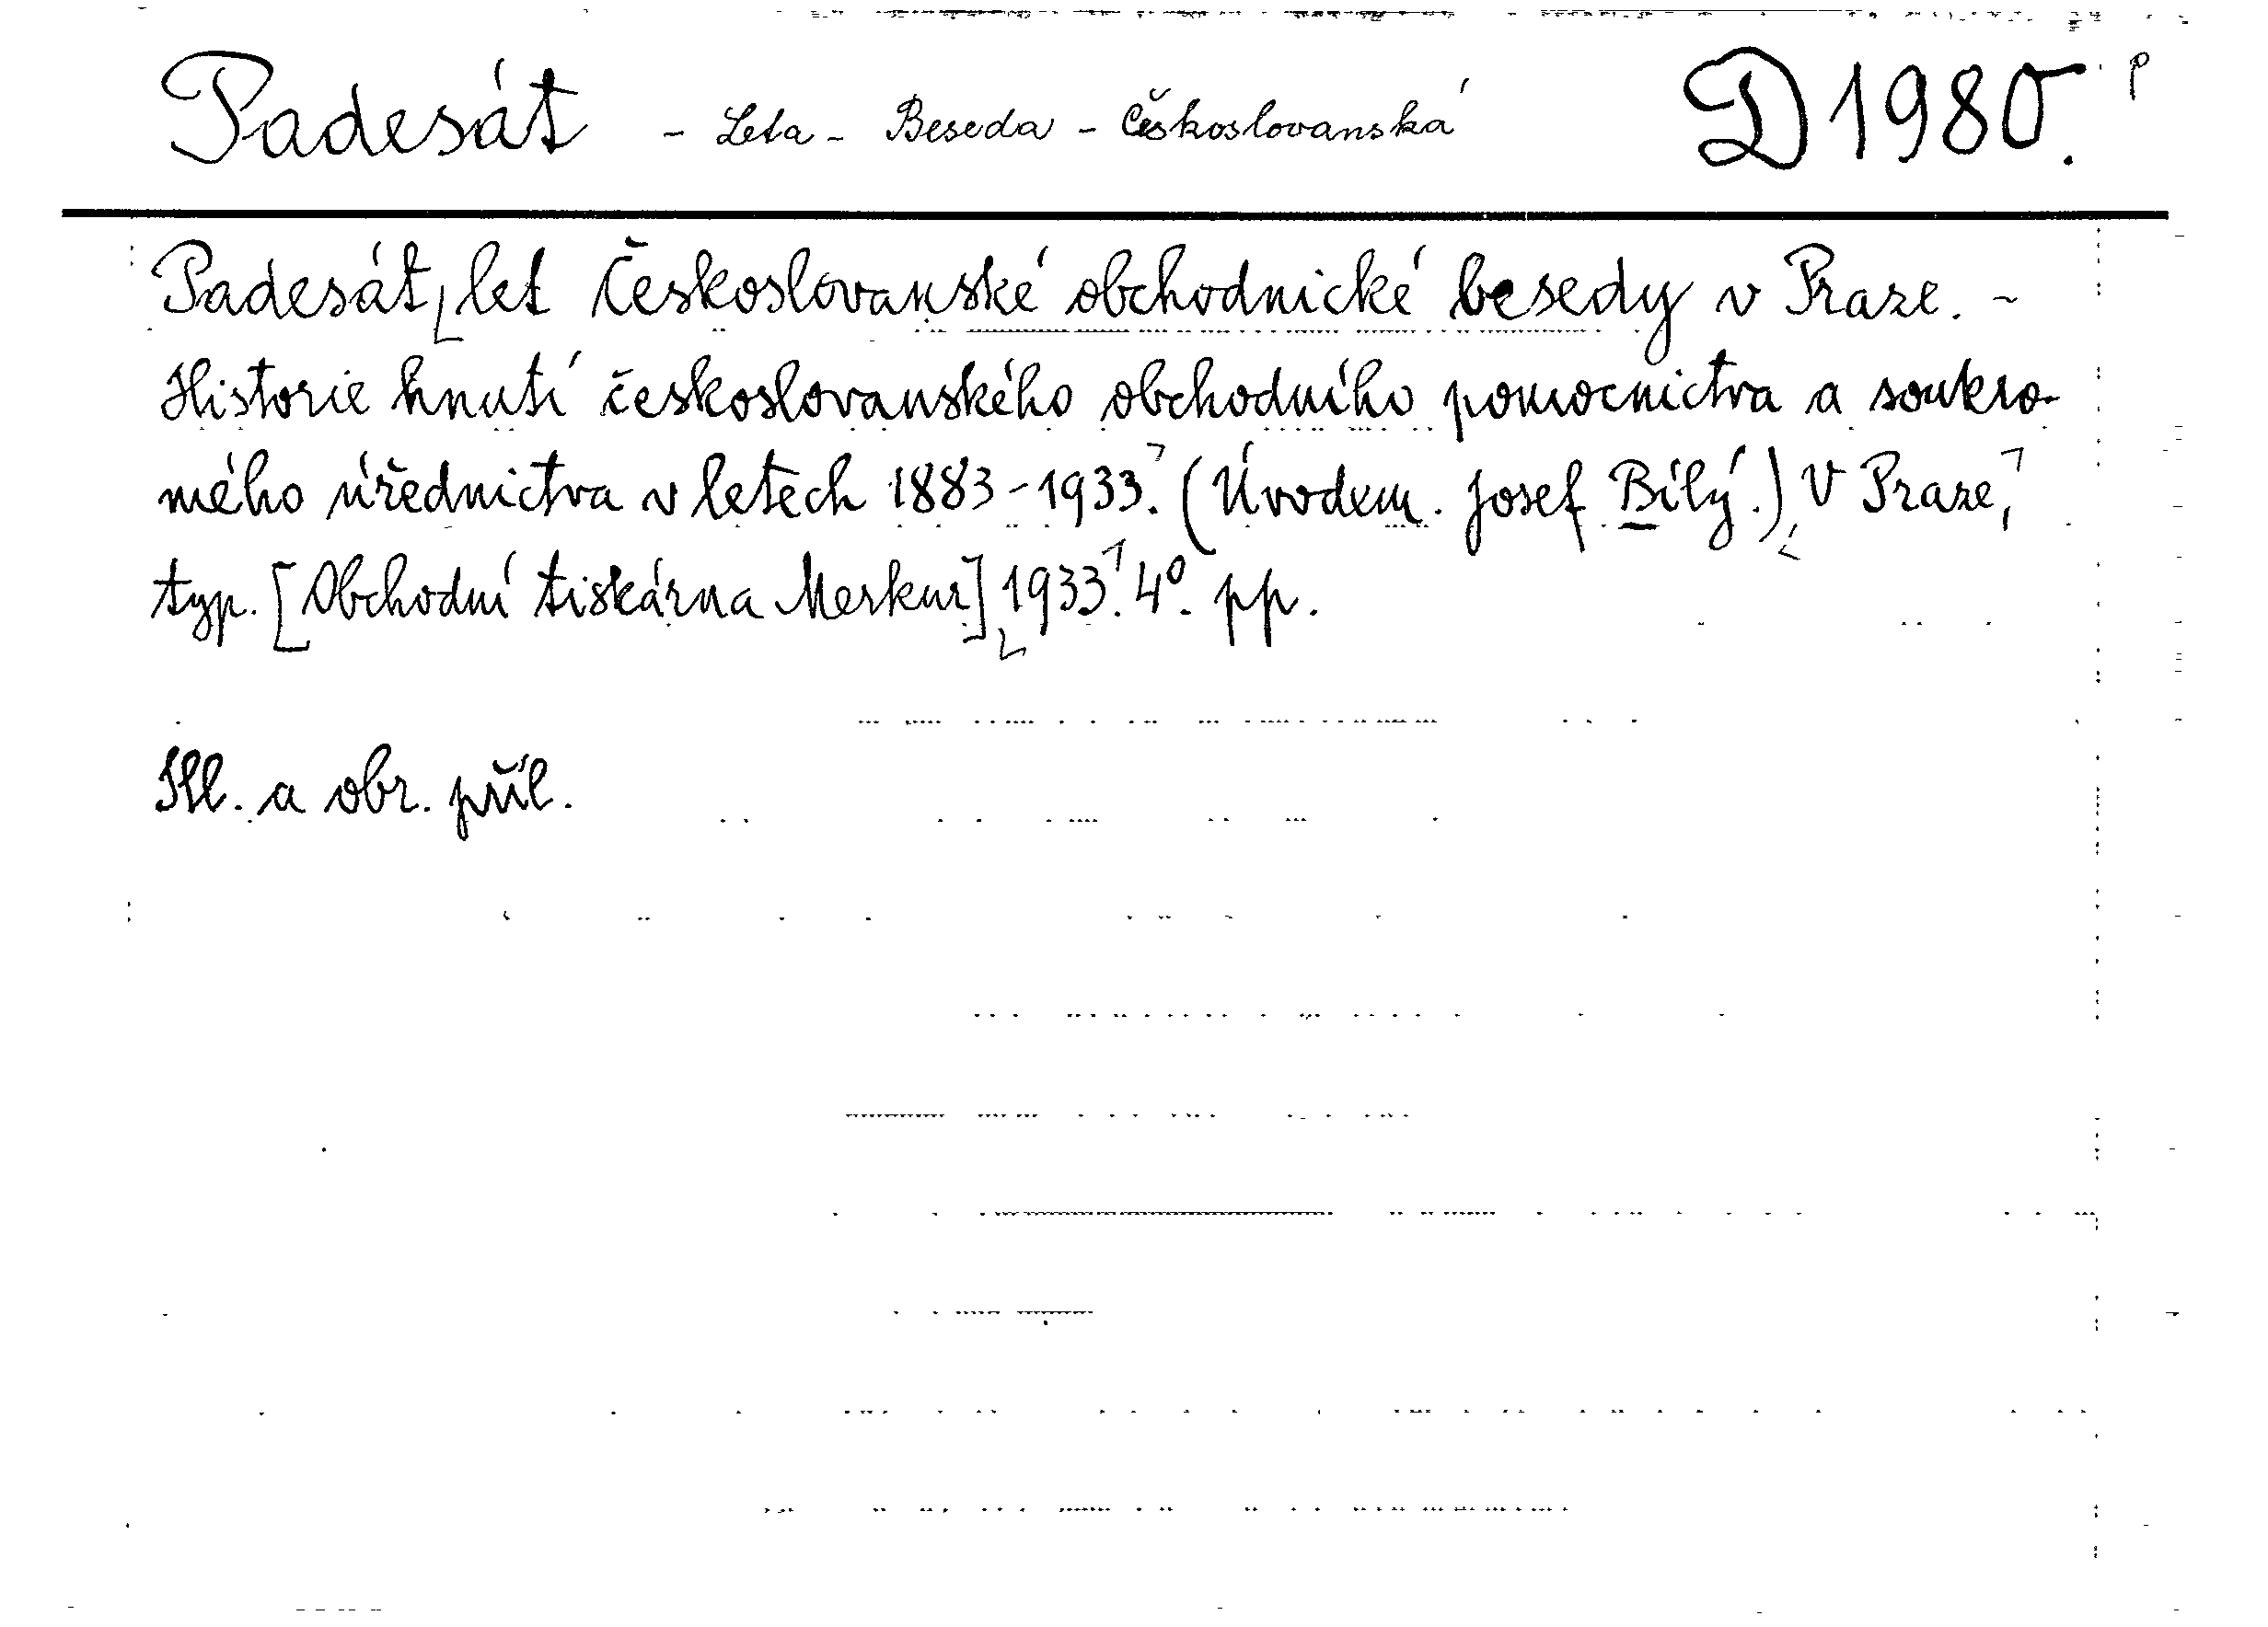 Padesát - Leta - Beseda - Českoslovanská D 1980. p
Padesát let Českoslovanské obchodnické besedy v Praze. -
Historie hnutí českoslovanského obchodního pomocnictva a soukro-
mého úřednictva v letech 1883-1933. (Úvodem. Josef Bílý.) V Praze,
typ. [Obchodní tiskárna Merkur] 1933. 4°. pp.
Ill. a obr. příl.